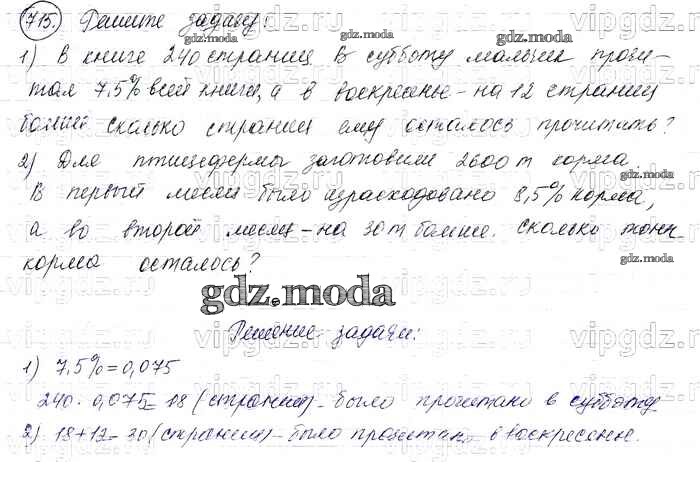 715. Решите задачу:
1) В книге 240 страниц. В субботу мальчик прочи-
тал 7,5% всей книги, а в воскресенье - на 12 страниц
больше. Сколько страниц ему осталось прочитать?
2) Для птицефермы заготовили 2600 т корма.
В первый месяц было израсходовано 8,5% корма,
а во второй месяц - на 30 т больше. Сколько тонн
корма осталось?
gdz.moda
Решение задачи:
1) 7,5% = 0,075
240 · 0,075 = 18 (страниц) - было прочитано в субботу
2) 18+12=30 (страниц) - было прочитано в воскресенье.